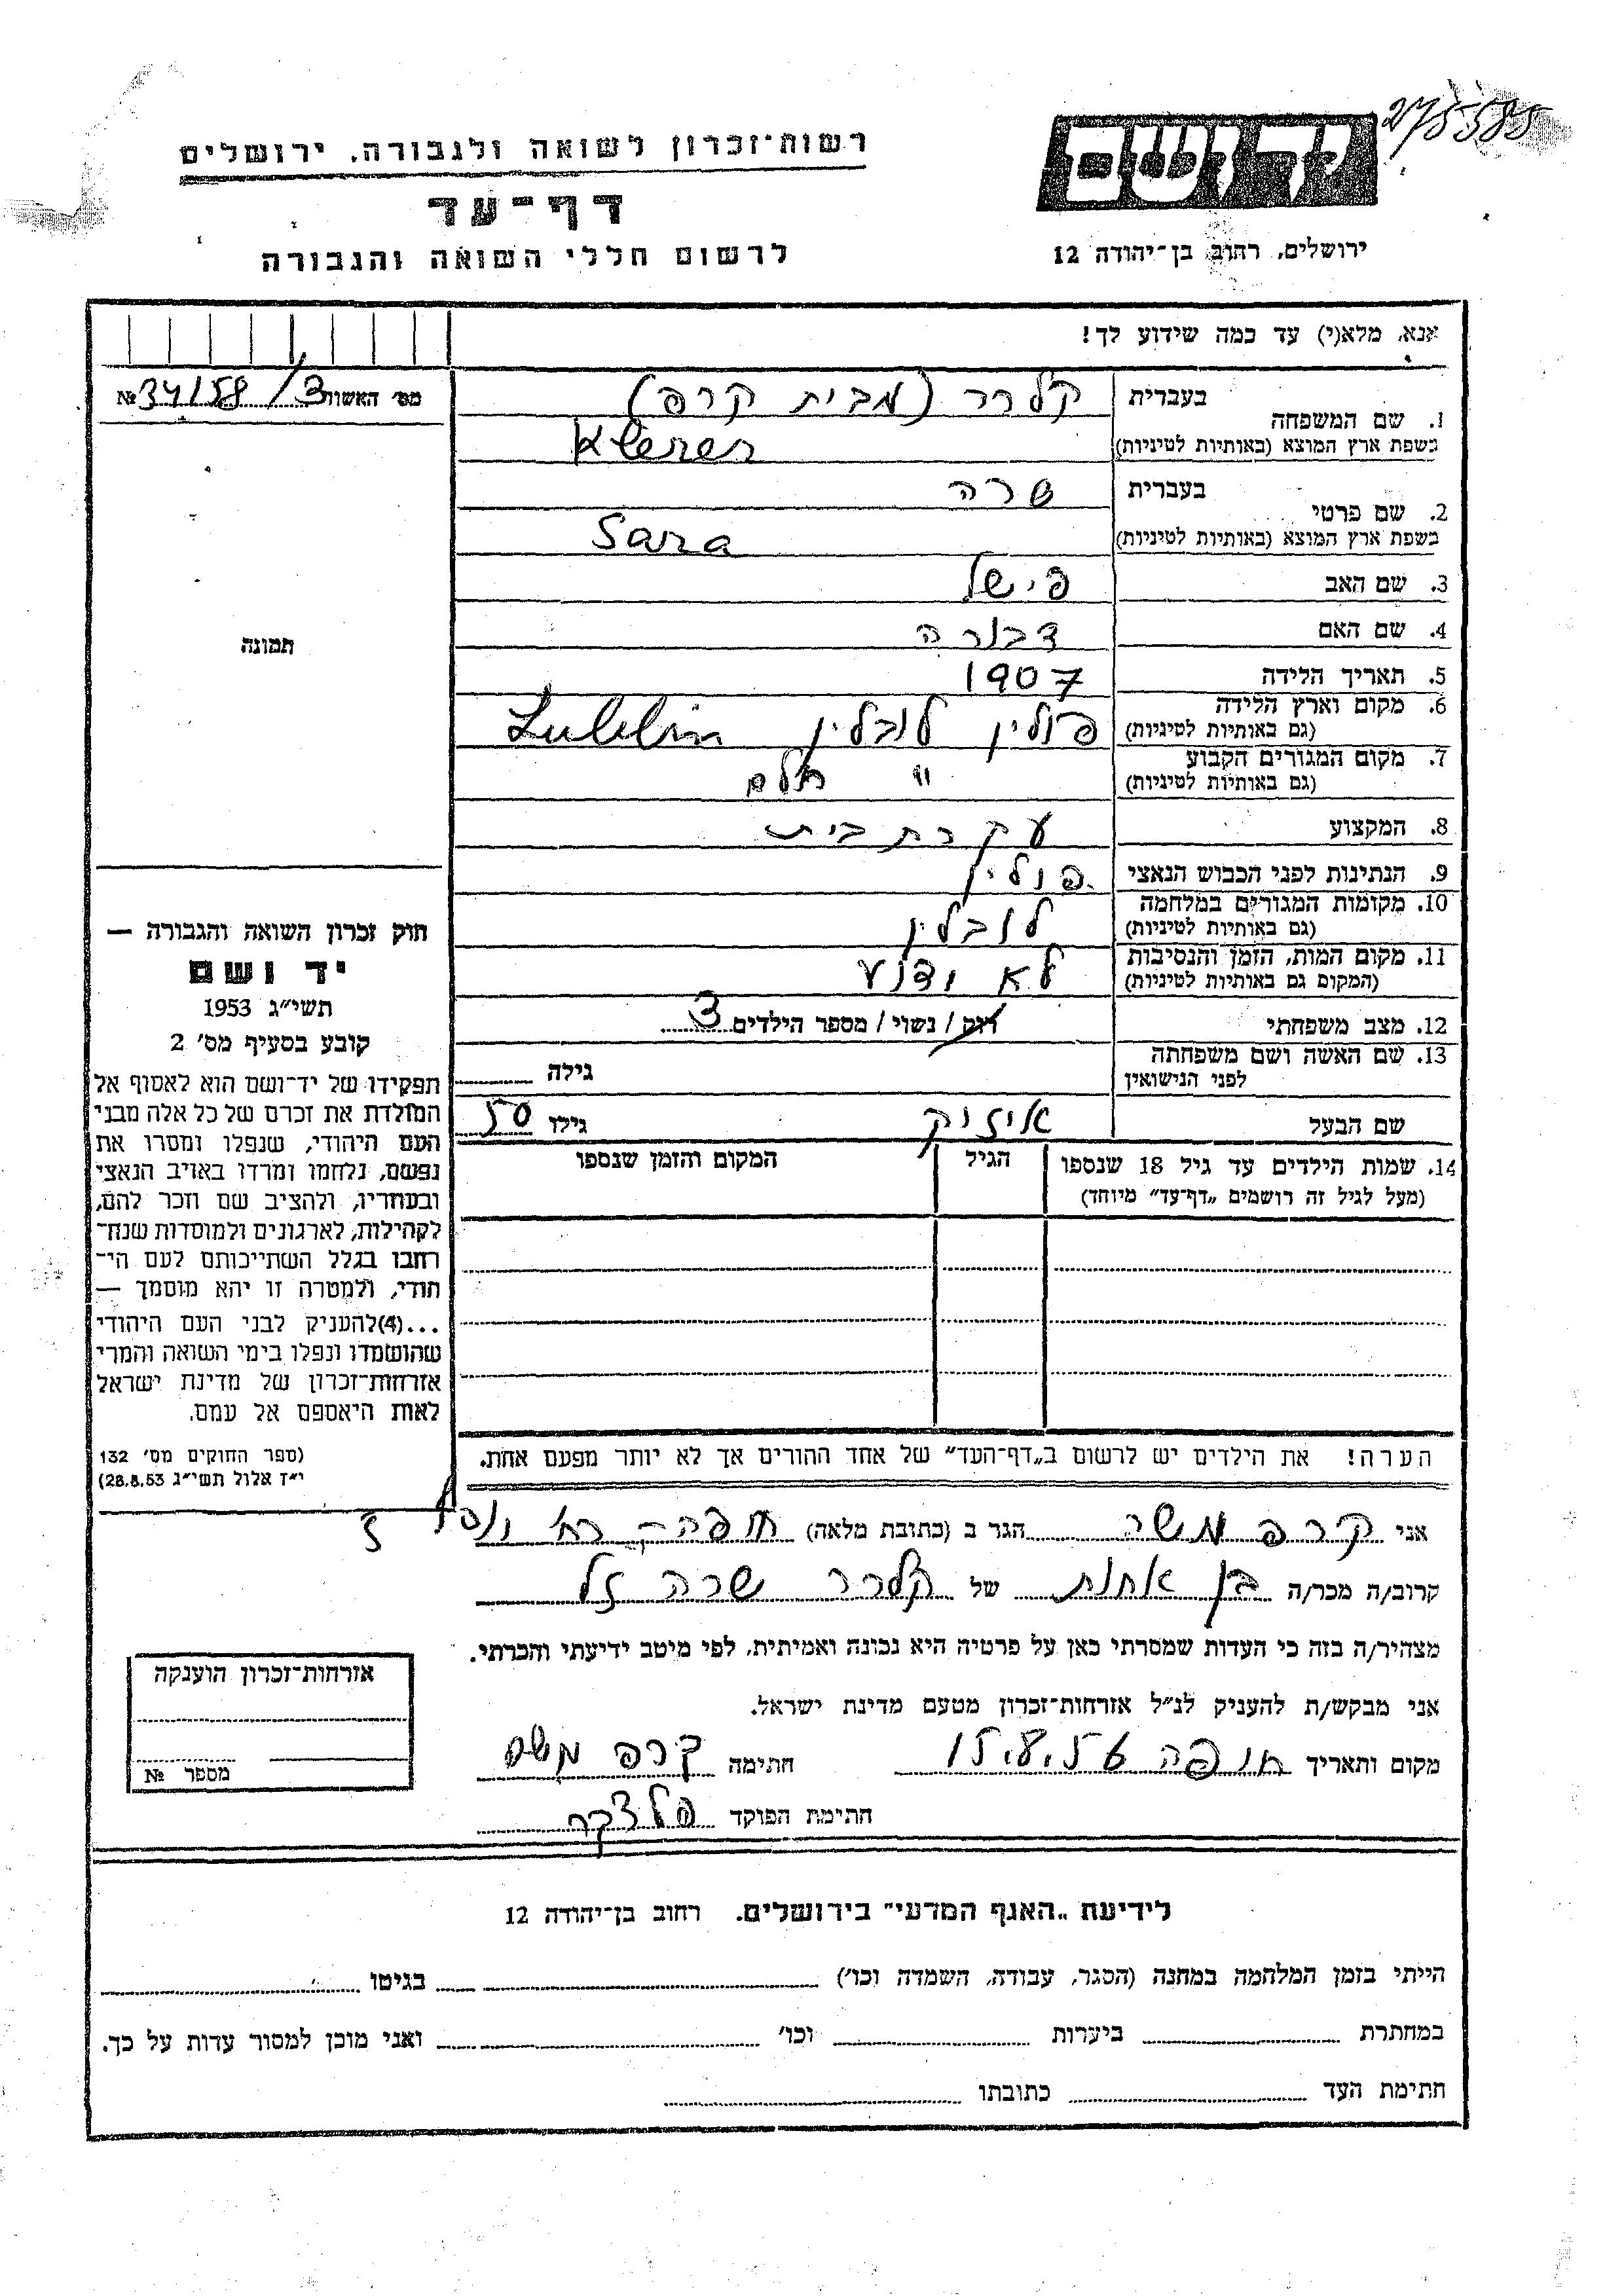 275585
יד ושם
רשות־זכרון לשואה ולגבורה. ירושלים
דף־עד
לרשום חללי השואה והגבורה
ירושלים, רחוב בן־יהודה 12
אנא, מלא(י) עד כמה שידוע לך!
מס׳ האשור 3/ 34158 №
1. שם המשפחה
בעברית קלרר (מבית קרפ)
בשפת ארץ המוצא (באותיות לטיניות) Klerer
2. שם פרטי
בעברית שרה
בשפת ארץ המוצא (באותיות לטיניות) Sara
3. שם האב פישל
4. שם האם דבורה
5. תאריך הלידה 1907
6. מקום וארץ הלידה (גם באותיות לטיניות) פולין לובלין Lublin
7. מקום המגורים הקבוע (גם באותיות לטיניות) " חלם
8. המקצוע עקרת בית
9. הנתינות לפני הכבוש הנאצי פולין
10. מקומות המגורים במלחמה (גם באותיות לטיניות) לובלין
11. מקום המות, הזמן והנסיבות (המקום גם באותיות לטיניות) לא ידוע
12. מצב משפחתי רוק / נשוי / מספר הילדים 3
13. שם האשה ושם משפחתה לפני הנישואין גילה
שם הבעל אייזיק גילו 50
14. שמות הילדים עד גיל 18 שנספו (מעל לגיל זה רושמים „דף־עד” מיוחד) הגיל המקום והזמן שנספו
תמונה
חוק זכרון השואה והגבורה —
יד ושם
תשי״ג 1953
קובע בסעיף מס׳ 2
תפקידו של יד־ושם הוא לאסוף אל
המולדת את זכרם של כל אלה מבני
העם היהודי, שנפלו ומסרו את
נפשם, נלחמו ומרדו באויב הנאצי
ובעוזריו, ולהציב שם וזכר להם,
לקהילות, לארגונים ולמוסדות שנח־
רחבו בגלל השתייכותם לעם הי־
הודי, ולמטרה זו יהא מוסמך —
...(4)להעניק לבני העם היהודי
שהושמדו ונפלו בימי השואה והמרי
אזרחות־זכרון של מדינת ישראל
לאות היאספם אל עמם.
(ספר החוקים מס׳ 132
י״ז אלול תשי״ג 28.8.53)
הערה! את הילדים יש לרשום ב„דף־העד” של אחד ההורים אך לא יותר מפעם אחת.
אני קרפ משה הגר ב (כתובת מלאה)
קרוב/ה מכר/ה בן אחות של קלרר שרה ז״ל
מצהיר/ה בזה כי העדות שמסרתי כאן על פרטיה היא נכונה ואמיתית, לפי מיטב ידיעתי והכרתי.
אני מבקש/ת להעניק לנ״ל אזרחות־זכרון מטעם מדינת ישראל.
מקום ותאריך חתימה קרפ משה
חתימת הפוקד
אזרחות־זכרון הוענקה
מספר №
לידיעת „האגף המדעי” בירושלים. רחוב בן־יהודה 12
הייתי בזמן המלחמה במחנה (הסגר, עבודה, השמדה וכו׳) בגיטו
במחתרת ביערות וכו׳ ואני מוכן למסור עדות על כך.
חתימת העד כתובתו